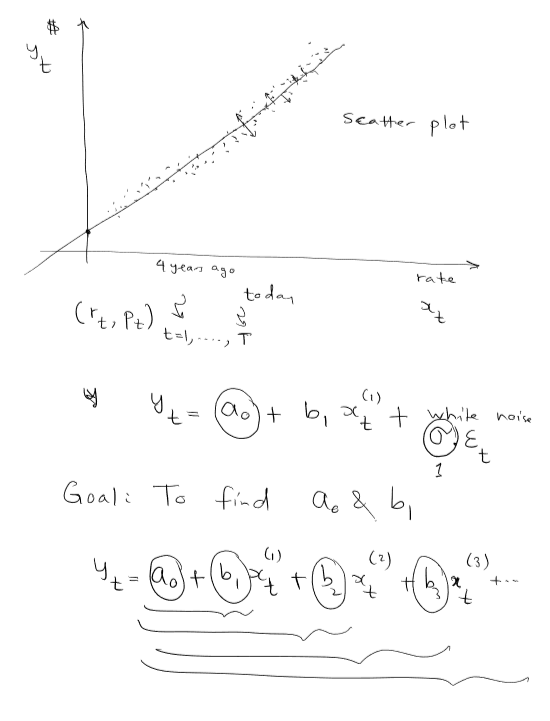 $
y_t
Scatter plot
4 years ago
rate
x_t
today
(r_t, p_t)
t=1, ...., T
y_t = a_0 + b_1 x_t^(1) + white noise
σ ε_t
1
Goal: To find a_0 & b_1
y_t = a_0 + b_1 x_t^(1) + b_2 x_t^(2) + b_3 x_t^(3) + ...